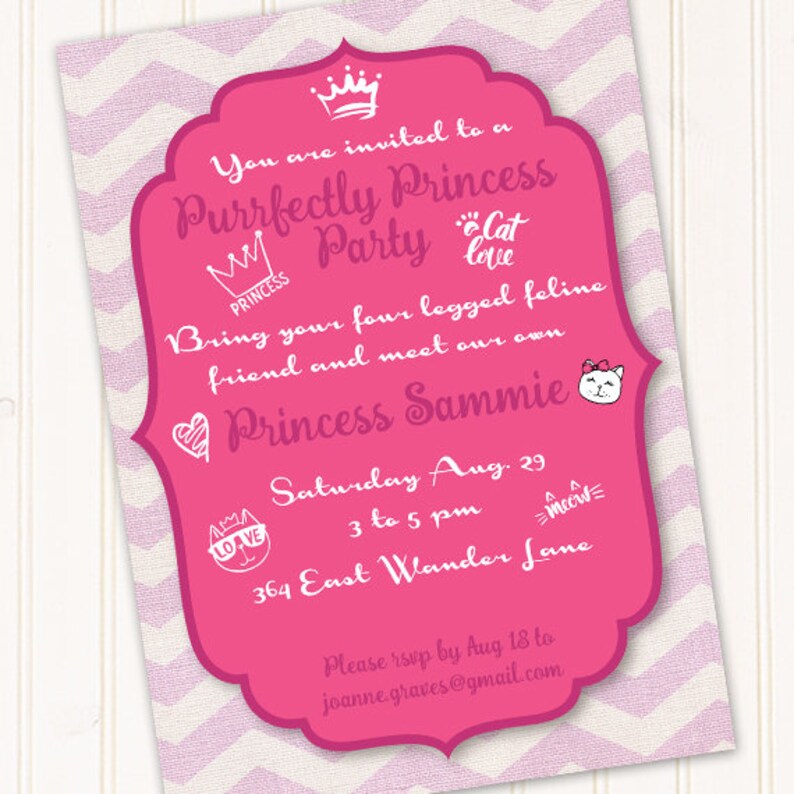 You are invited to a
Purrfectly Princess
Party
Cat
love
PRINCESS
Bring your four legged feline
friend and meet our own
Princess Sammie
Saturday Aug. 29
3 to 5 pm
meow
LOVE
364 East Wander Lane
Please rsvp by Aug 18 to
joanne.graves@gmail.com